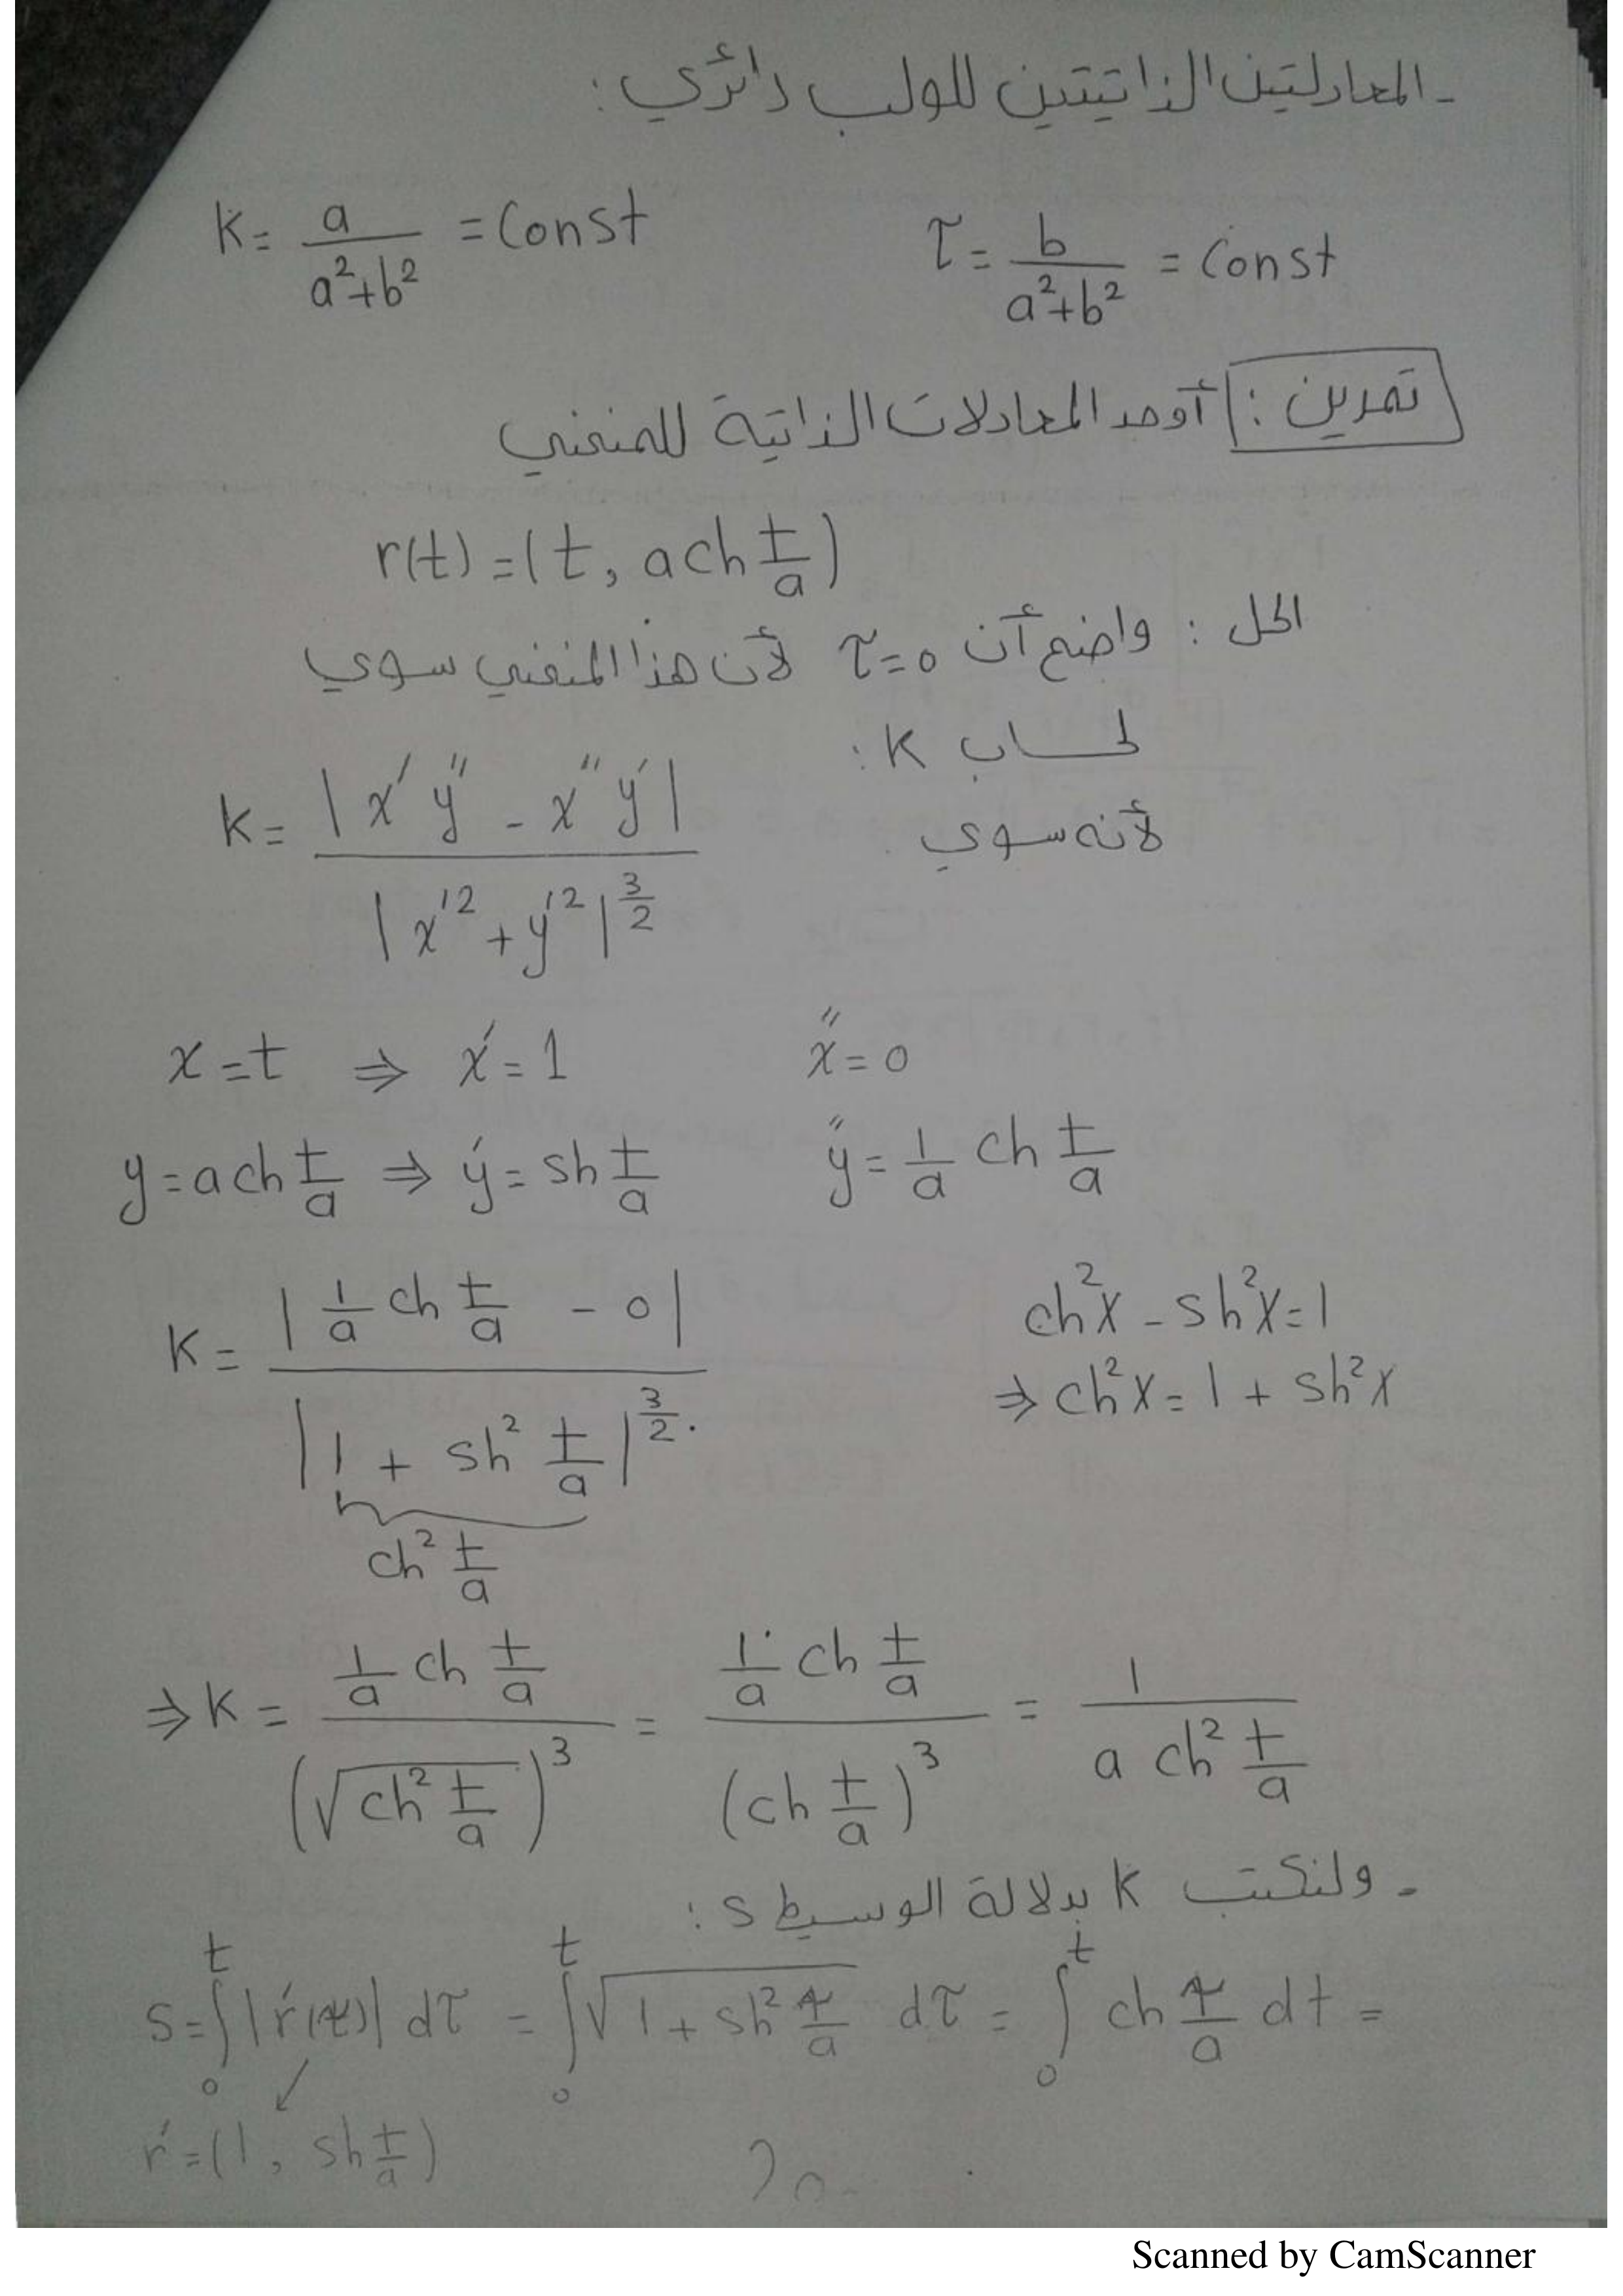 - المعادلتين الذاتيتين للولب دائري :
K = a / (a² + b²) = Const    τ = b / (a² + b²) = Const
تمرين : أوجد المعادلات الذاتية للمنحني
r(t) = (t, a ch t/a)
الحل : واضح أن τ = 0 لأن هذا المنحني سوي
لحساب K :
K = |x′ y″ - x″ y′| / |x′² + y′²|^(3/2)    لأنه سوي
x = t ⇒ x′ = 1    x″ = 0
y = a ch t/a ⇒ y′ = sh t/a    y″ = 1/a ch t/a
K = |1/a ch t/a - 0| / |1 + sh² t/a|^(3/2)    ch²x - sh²x = 1
⇒ ch²x = 1 + sh²x
ch² t/a
⇒ K = (1/a ch t/a) / (√(ch² t/a))³ = (1/a ch t/a) / (ch t/a)³ = 1 / (a ch² t/a)
- ولنكتب K بدلالة الوسيط s :
s = ∫₀ᵗ |r′(τ)| dτ = ∫₀ᵗ √(1 + sh² τ/a) dτ = ∫₀ᵗ ch τ/a dt =
r′ = (1, sh t/a)
Scanned by CamScanner